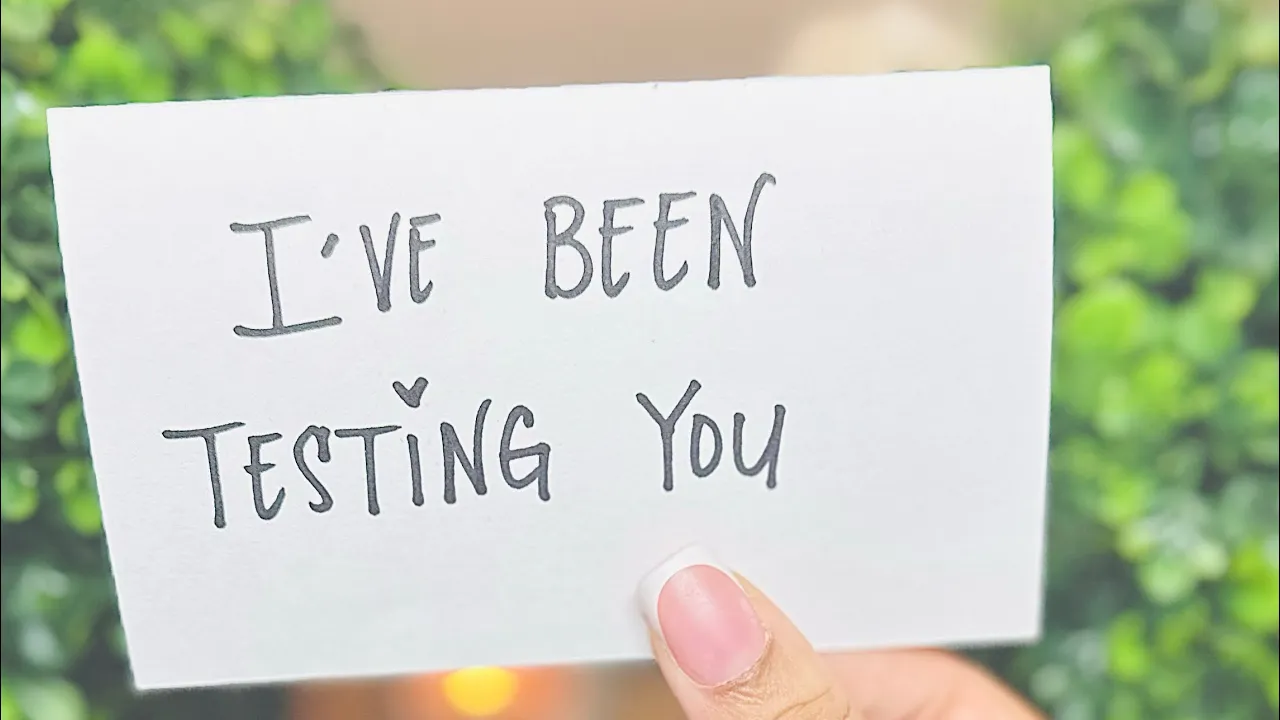 I'VE BEEN
TESTING YOU